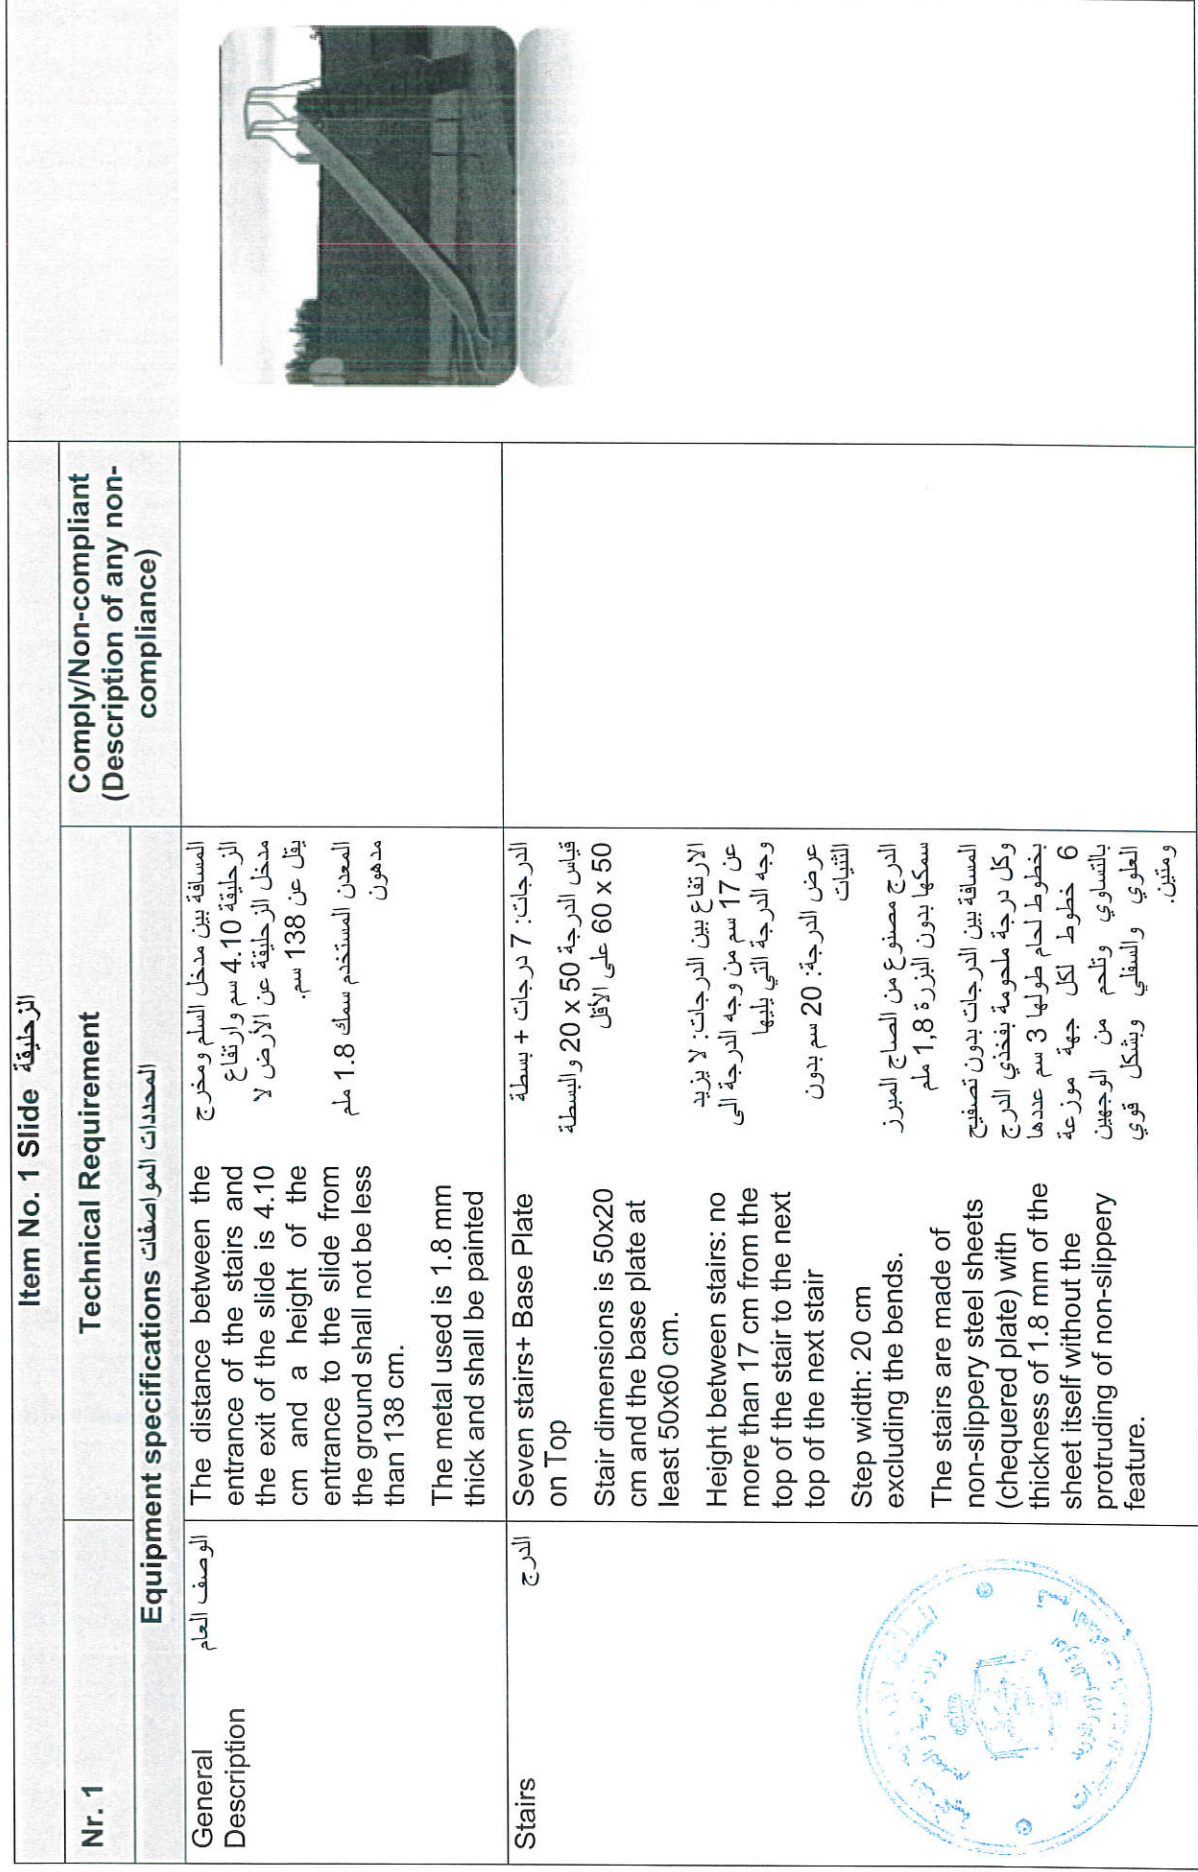 Item No. 1 Slide الزحليقة
Nr. 1
Technical Requirement
Comply/Non-compliant
(Description of any non-
compliance)
Equipment specifications المحددات المواصفات
General
Description
الوصف العام
The distance between the
entrance of the stairs and
the exit of the slide is 4.10
cm and a height of the
entrance to the slide from
the ground shall not be less
than 138 cm.
The metal used is 1.8 mm
thick and shall be painted
المسافة بين مدخل السلم ومخرج
الزحليقة 4.10 سم وارتفاع
مدخل الزحليقة عن الأرض لا
يقل عن 138 سم.
المعدن المستخدم سمك 1.8 ملم
مدهون
Stairs
الدرج
Seven stairs+ Base Plate
on Top
Stair dimensions is 50x20
cm and the base plate at
least 50x60 cm.
Height between stairs: no
more than 17 cm from the
top of the stair to the next
top of the next stair
Step width: 20 cm
excluding the bends.
The stairs are made of
non-slippery steel sheets
(chequered plate) with
thickness of 1.8 mm of the
sheet itself without the
protruding of non-slippery
feature.
الدرجات: 7 درجات + بسطة
قياس الدرجة 50 x 20 والبسطة
50 x 60 على الأقل
الارتفاع بين الدرجات: لا يزيد
عن 17 سم من وجه الدرجة الى
وجه الدرجة التي يليها
عرض الدرجة: 20 سم بدون
الثنيات
الدرج مصنوع من الصاج المبرز
سمكها بدون البزرة 1,8 ملم
المسافة بين الدرجات بدون تصفيح
وكل درجة ملحومة بفخذي الدرج
بخطوط لحام طولها 3 سم عددها
6 خطوط لكل جهة موزعة
بالتساوي وتلحم من الوجهين
العلوي والسفلي وبشكل قوي
ومتين.